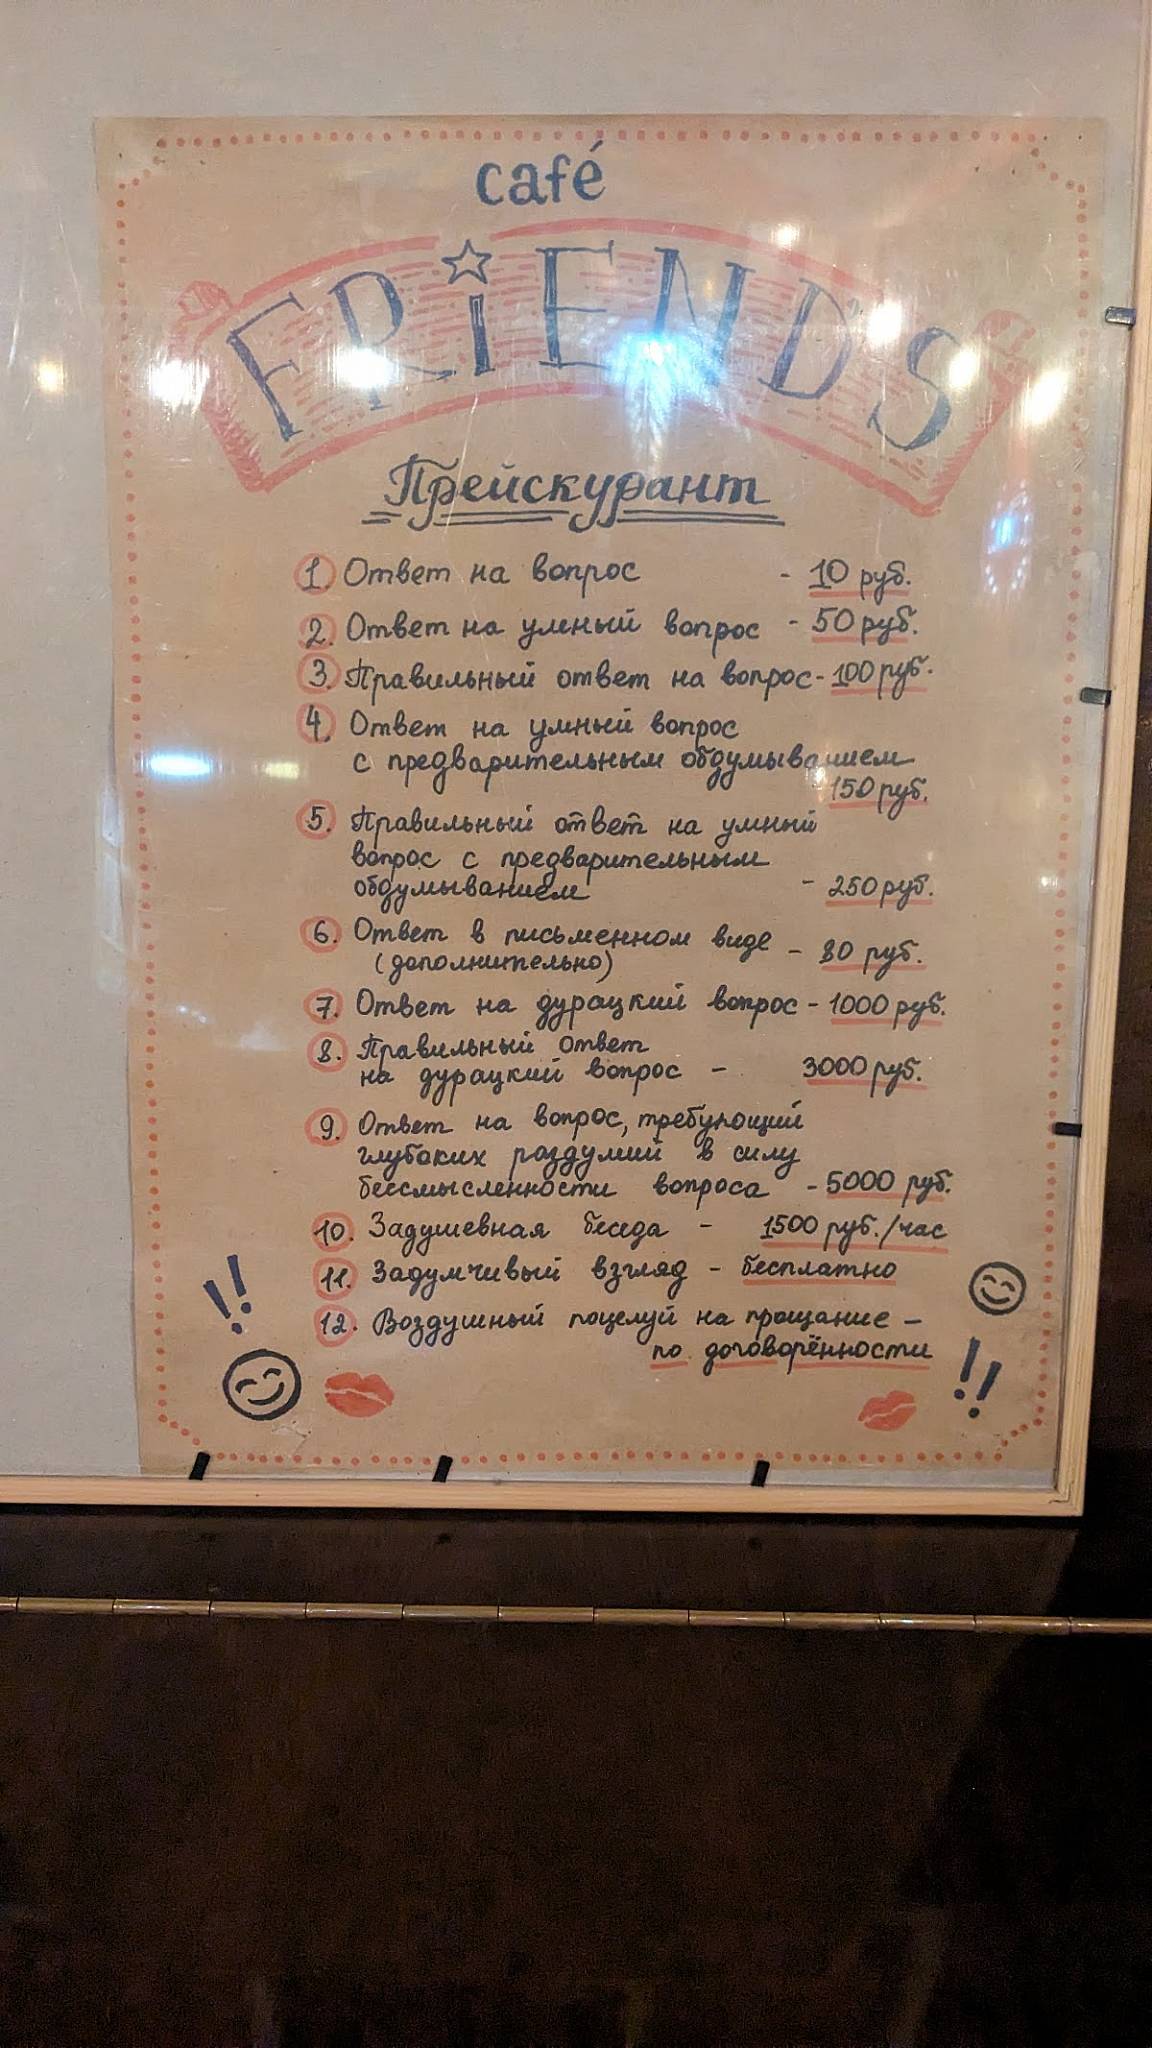 café
FRiENDS
Прейскурант
1. Ответ на вопрос - 10 руб.
2. Ответ на умный вопрос - 50 руб.
3. Правильный ответ на вопрос - 100 руб.
4. Ответ на умный вопрос
с предварительным обдумыванием
150 руб.
5. Правильный ответ на умный
вопрос с предварительным
обдумыванием - 250 руб.
6. Ответ в письменном виде - 80 руб.
(дополнительно)
7. Ответ на дурацкий вопрос - 1000 руб.
8. Правильный ответ
на дурацкий вопрос - 3000 руб.
9. Ответ на вопрос, требующий
глубоких раздумий в силу
бессмысленности вопроса - 5000 руб.
10. Задушевная беседа - 1500 руб./час
11. Задумчивый взгляд - бесплатно
12. Воздушный поцелуй на прощание -
по договорённости
!!
!!